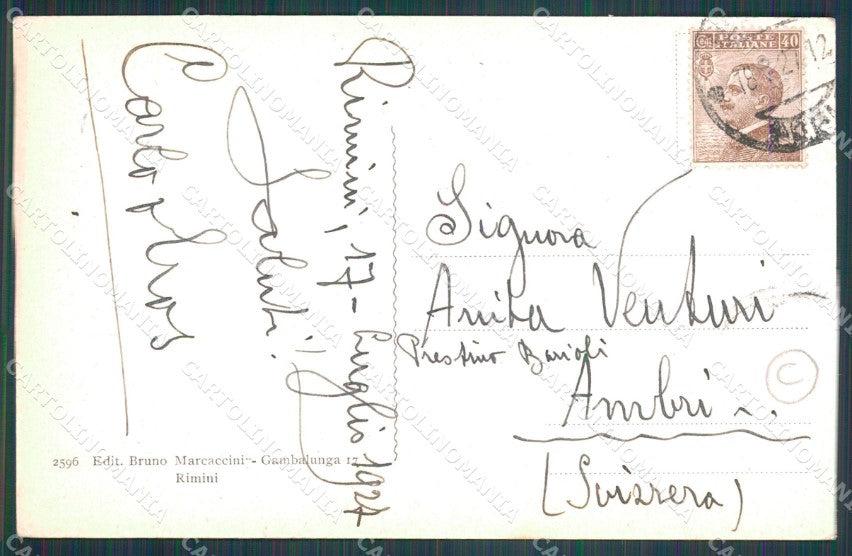 Rimini, 17 - Luglio 1927
Saluti!
Carlo
POSTE
ITALIANE
Cent. 40
Signora
Anita Venturi
Prestino Barioli
Ambri ..
(Svizzera)
C
2596 Edit. Bruno Marcaccini - Gambalunga 17
Rimini
CARTOLINOMANIA